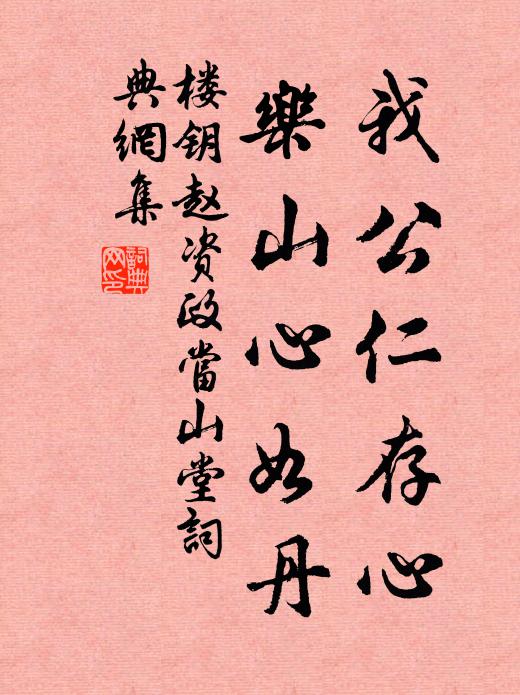 我公仁存心
樂山心如丹
楼钥赵资政當山堂詞
典網集
詞典網印